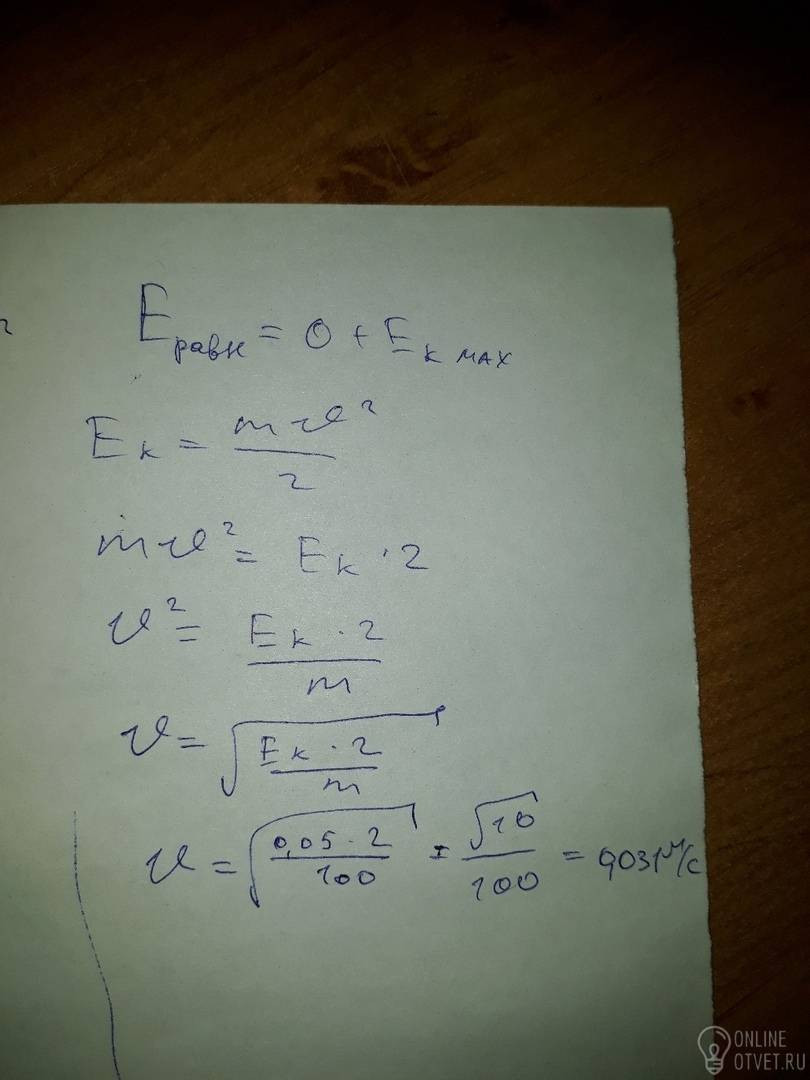 E равн = 0 + E к мах
Eк = mv² / 2
mv² = Eк · 2
v² = Eк · 2 / m
v = √(Eк · 2 / m)
v = √(0,05 · 2 / 100) = √10 / 100 = 0,031 м/с
ONLINE
OTVET.RU